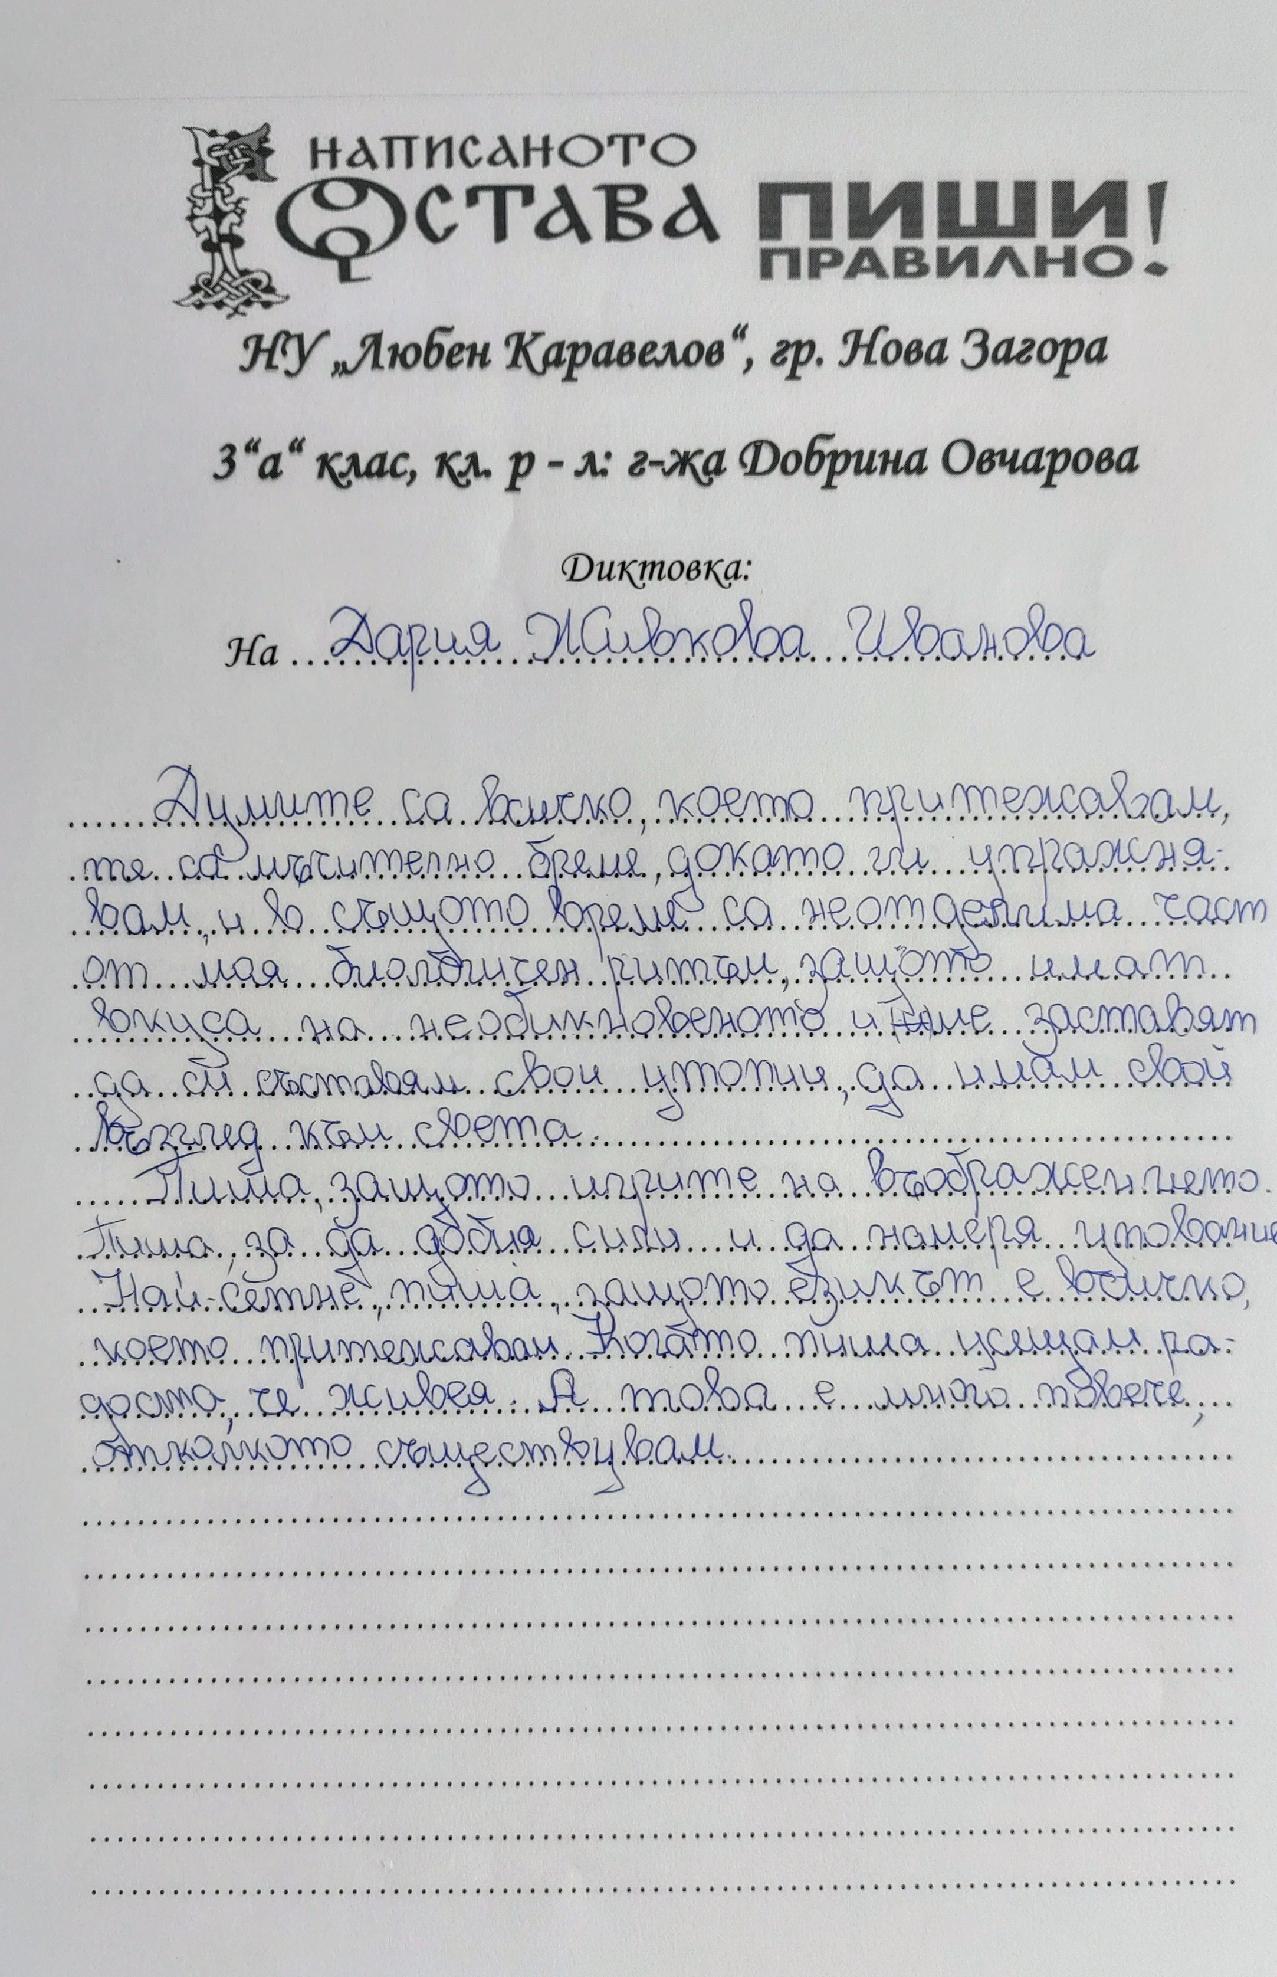 НАПИСАНОТО
ОСТАВА
ПИШИ
ПРАВИЛНО!
НУ „Любен Каравелов“, гр. Нова Загора
3“а“ клас, кл. р - л: г-жа Добрина Овчарова
Диктовка:
На Дария Живкова Иванова
Думите са всичко, което притежавам,
те са мъчително бреме, докато ги упражня-
вам, и в същото време са неотделима част
от моя биологичен ритъм, защото имат
вкуса на необикновеното и ме заставят
да си съставям свои утопии, да имам свой
възглед към света.
Пиша, защото игрите на въображението.
Пиша, за да добия сили и да намеря упование
Най-сетне, пиша, защото езикът е всичко,
което притежавам. Когато пиша усещам ра-
доста, че живея. А това е много повече,
отколкото съществувам.